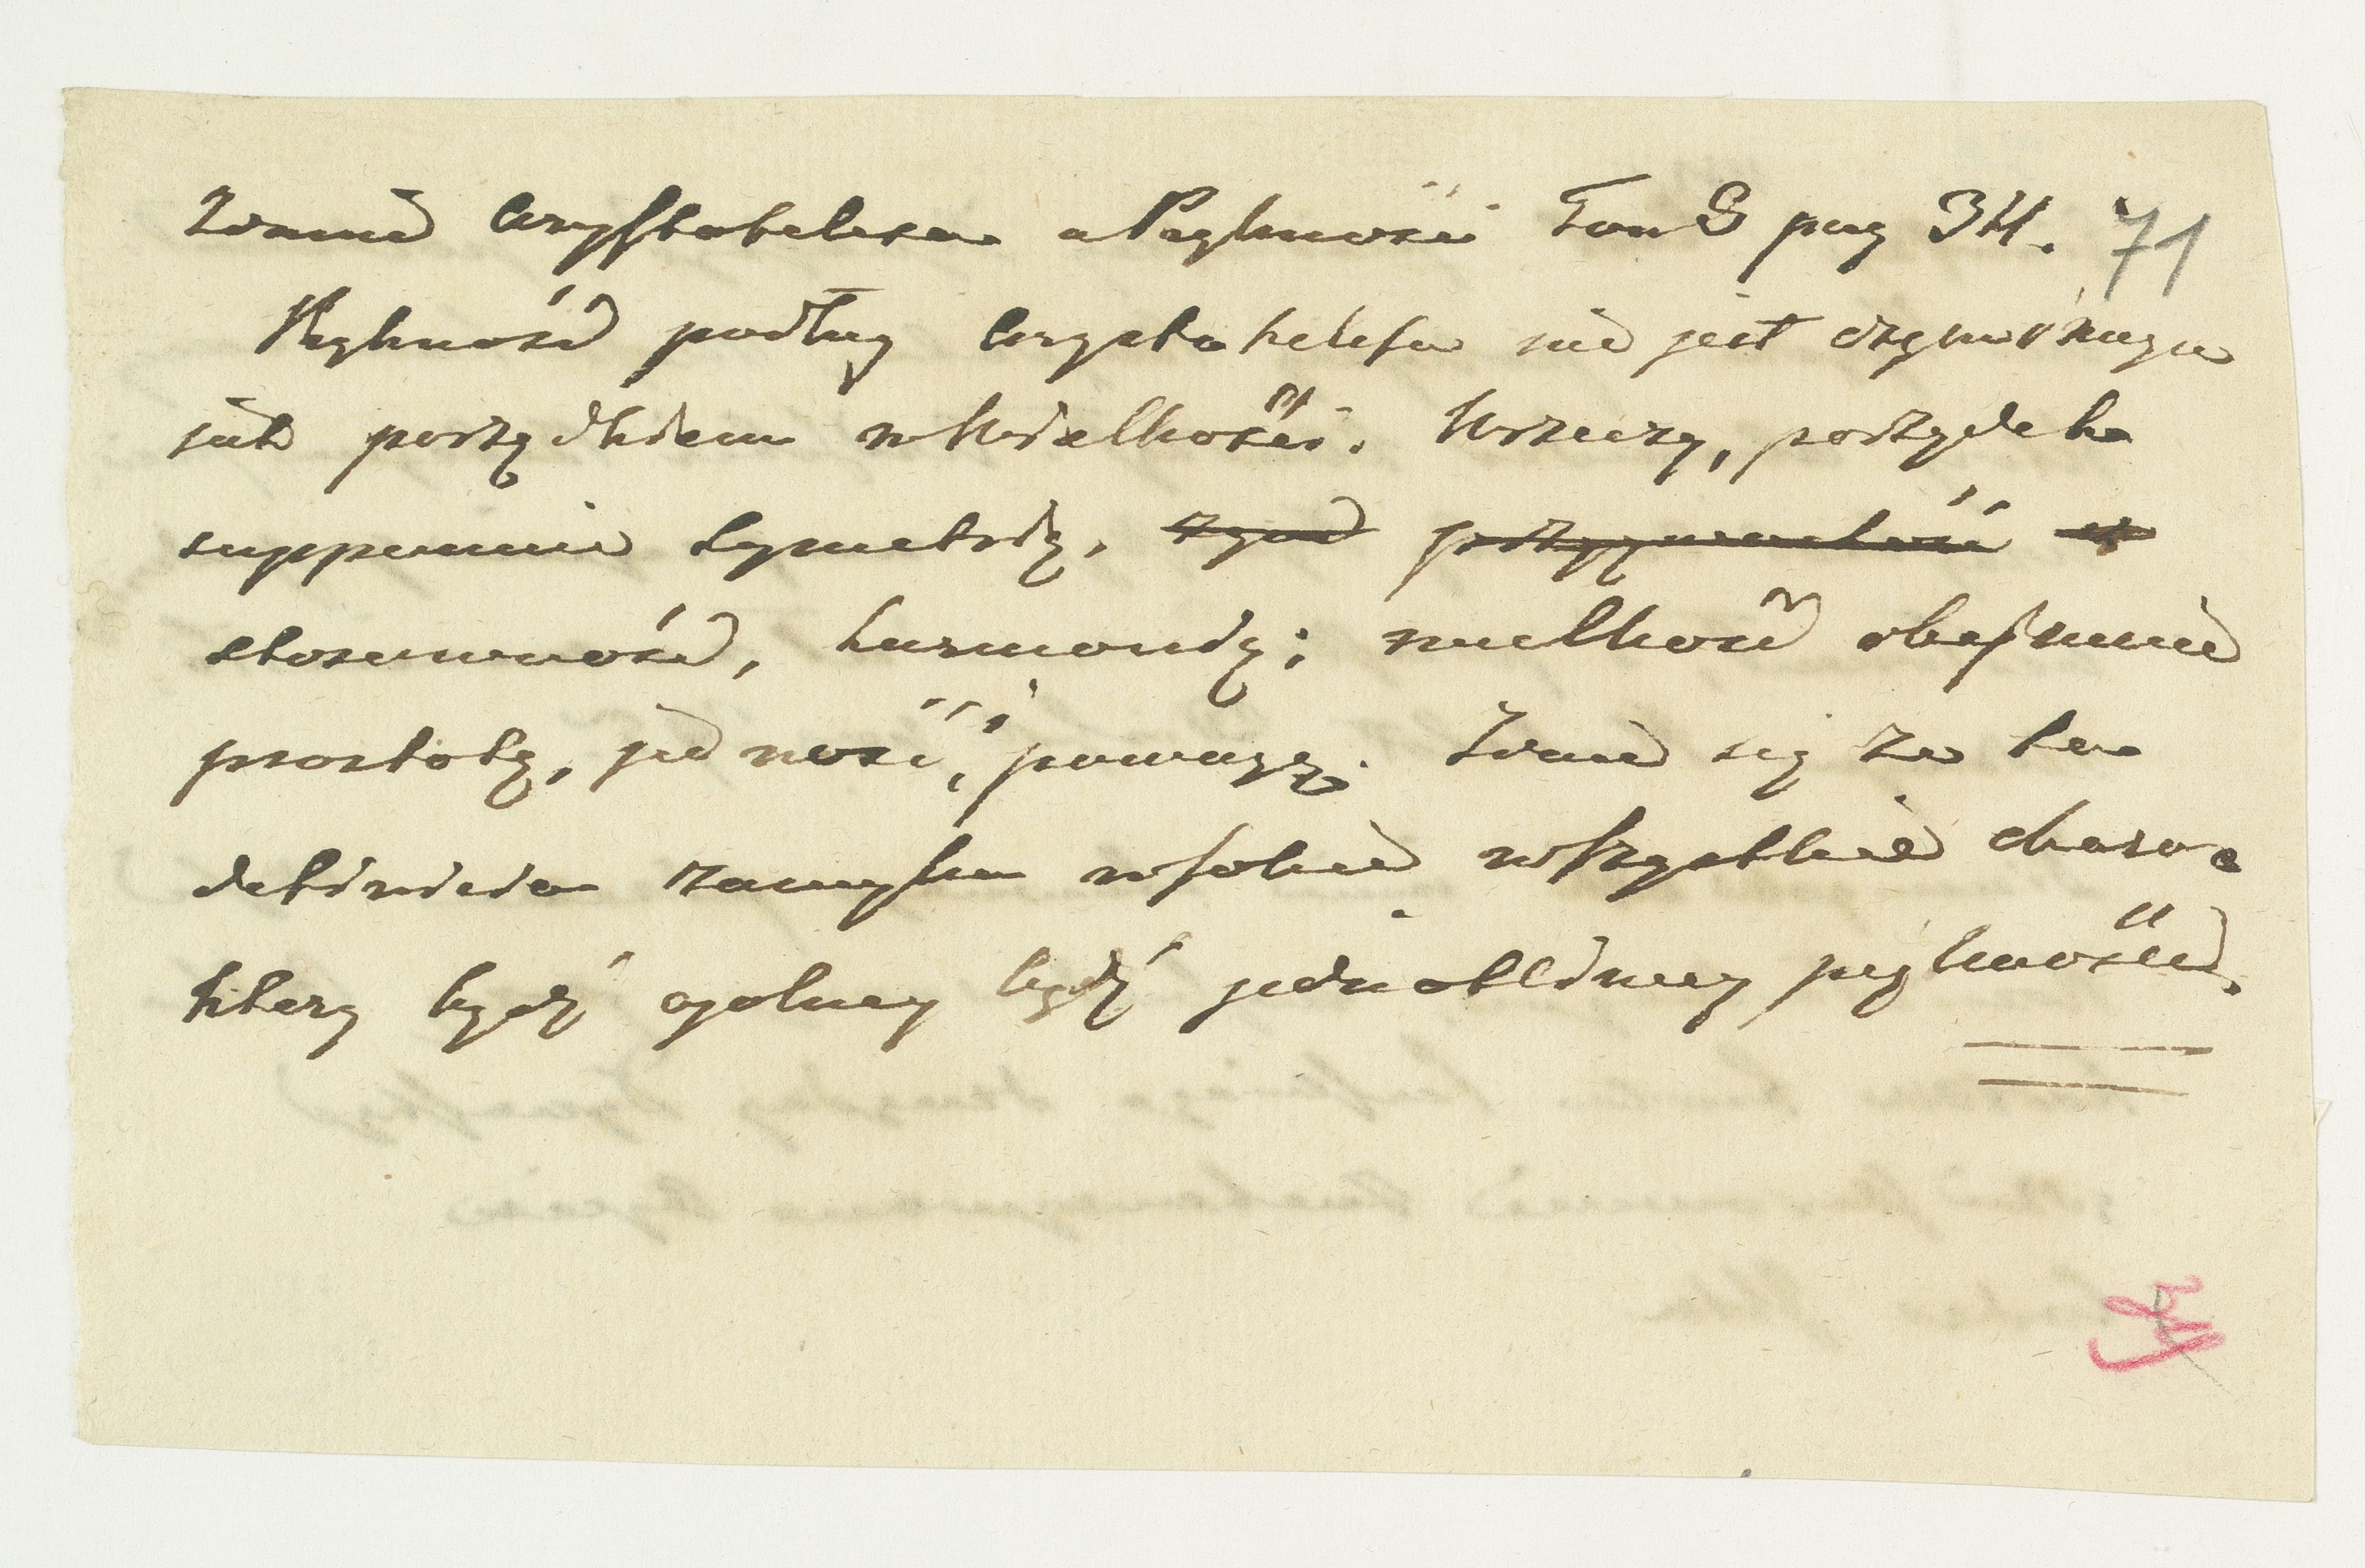 Zdanie Arystotelesa o Pięknosci Tom 8 pag 3H. 71
Piękność podług Arystotelesa nie jest czym innym
jak porządkiem w Wielkości. W rzeczy, porządek
suppenuie symetrią,
stosowność, harmonią; wielkość obejmuie
prostotę, jedność, powagę. Zdaie się że ta
definicia zamyka w sobie wszystkie chara-
ktery bądź ogolney bądź jednostkowey piękności.